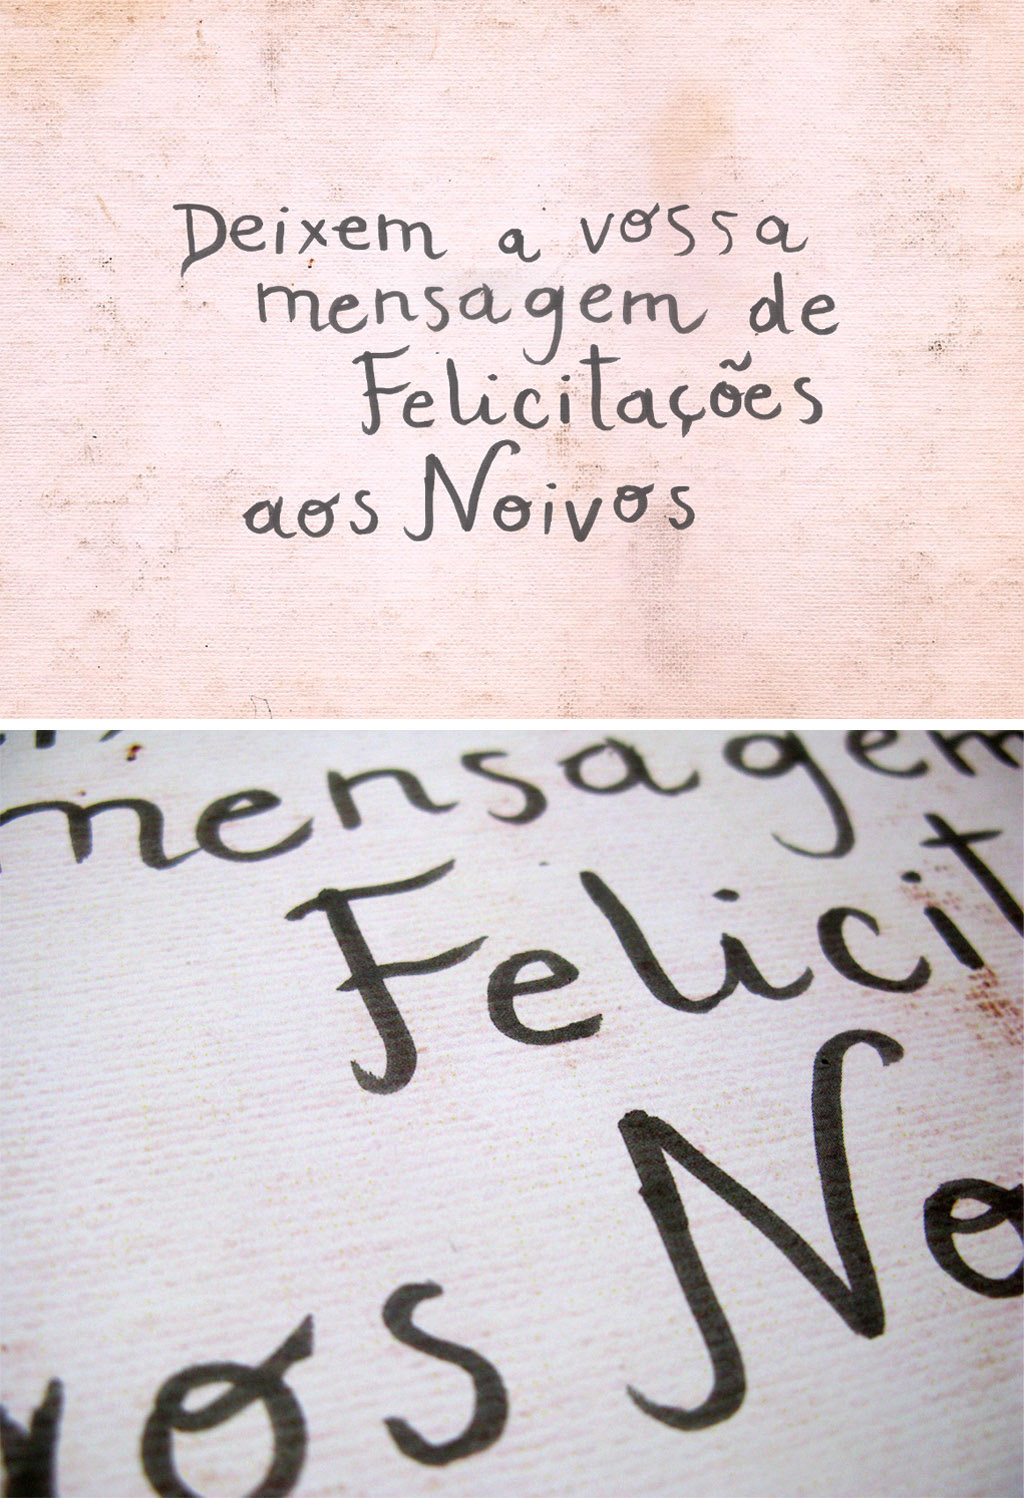 Deixem a vossa
mensagem de
Felicitações
aos Noivos
mensagem
Felicit
os No